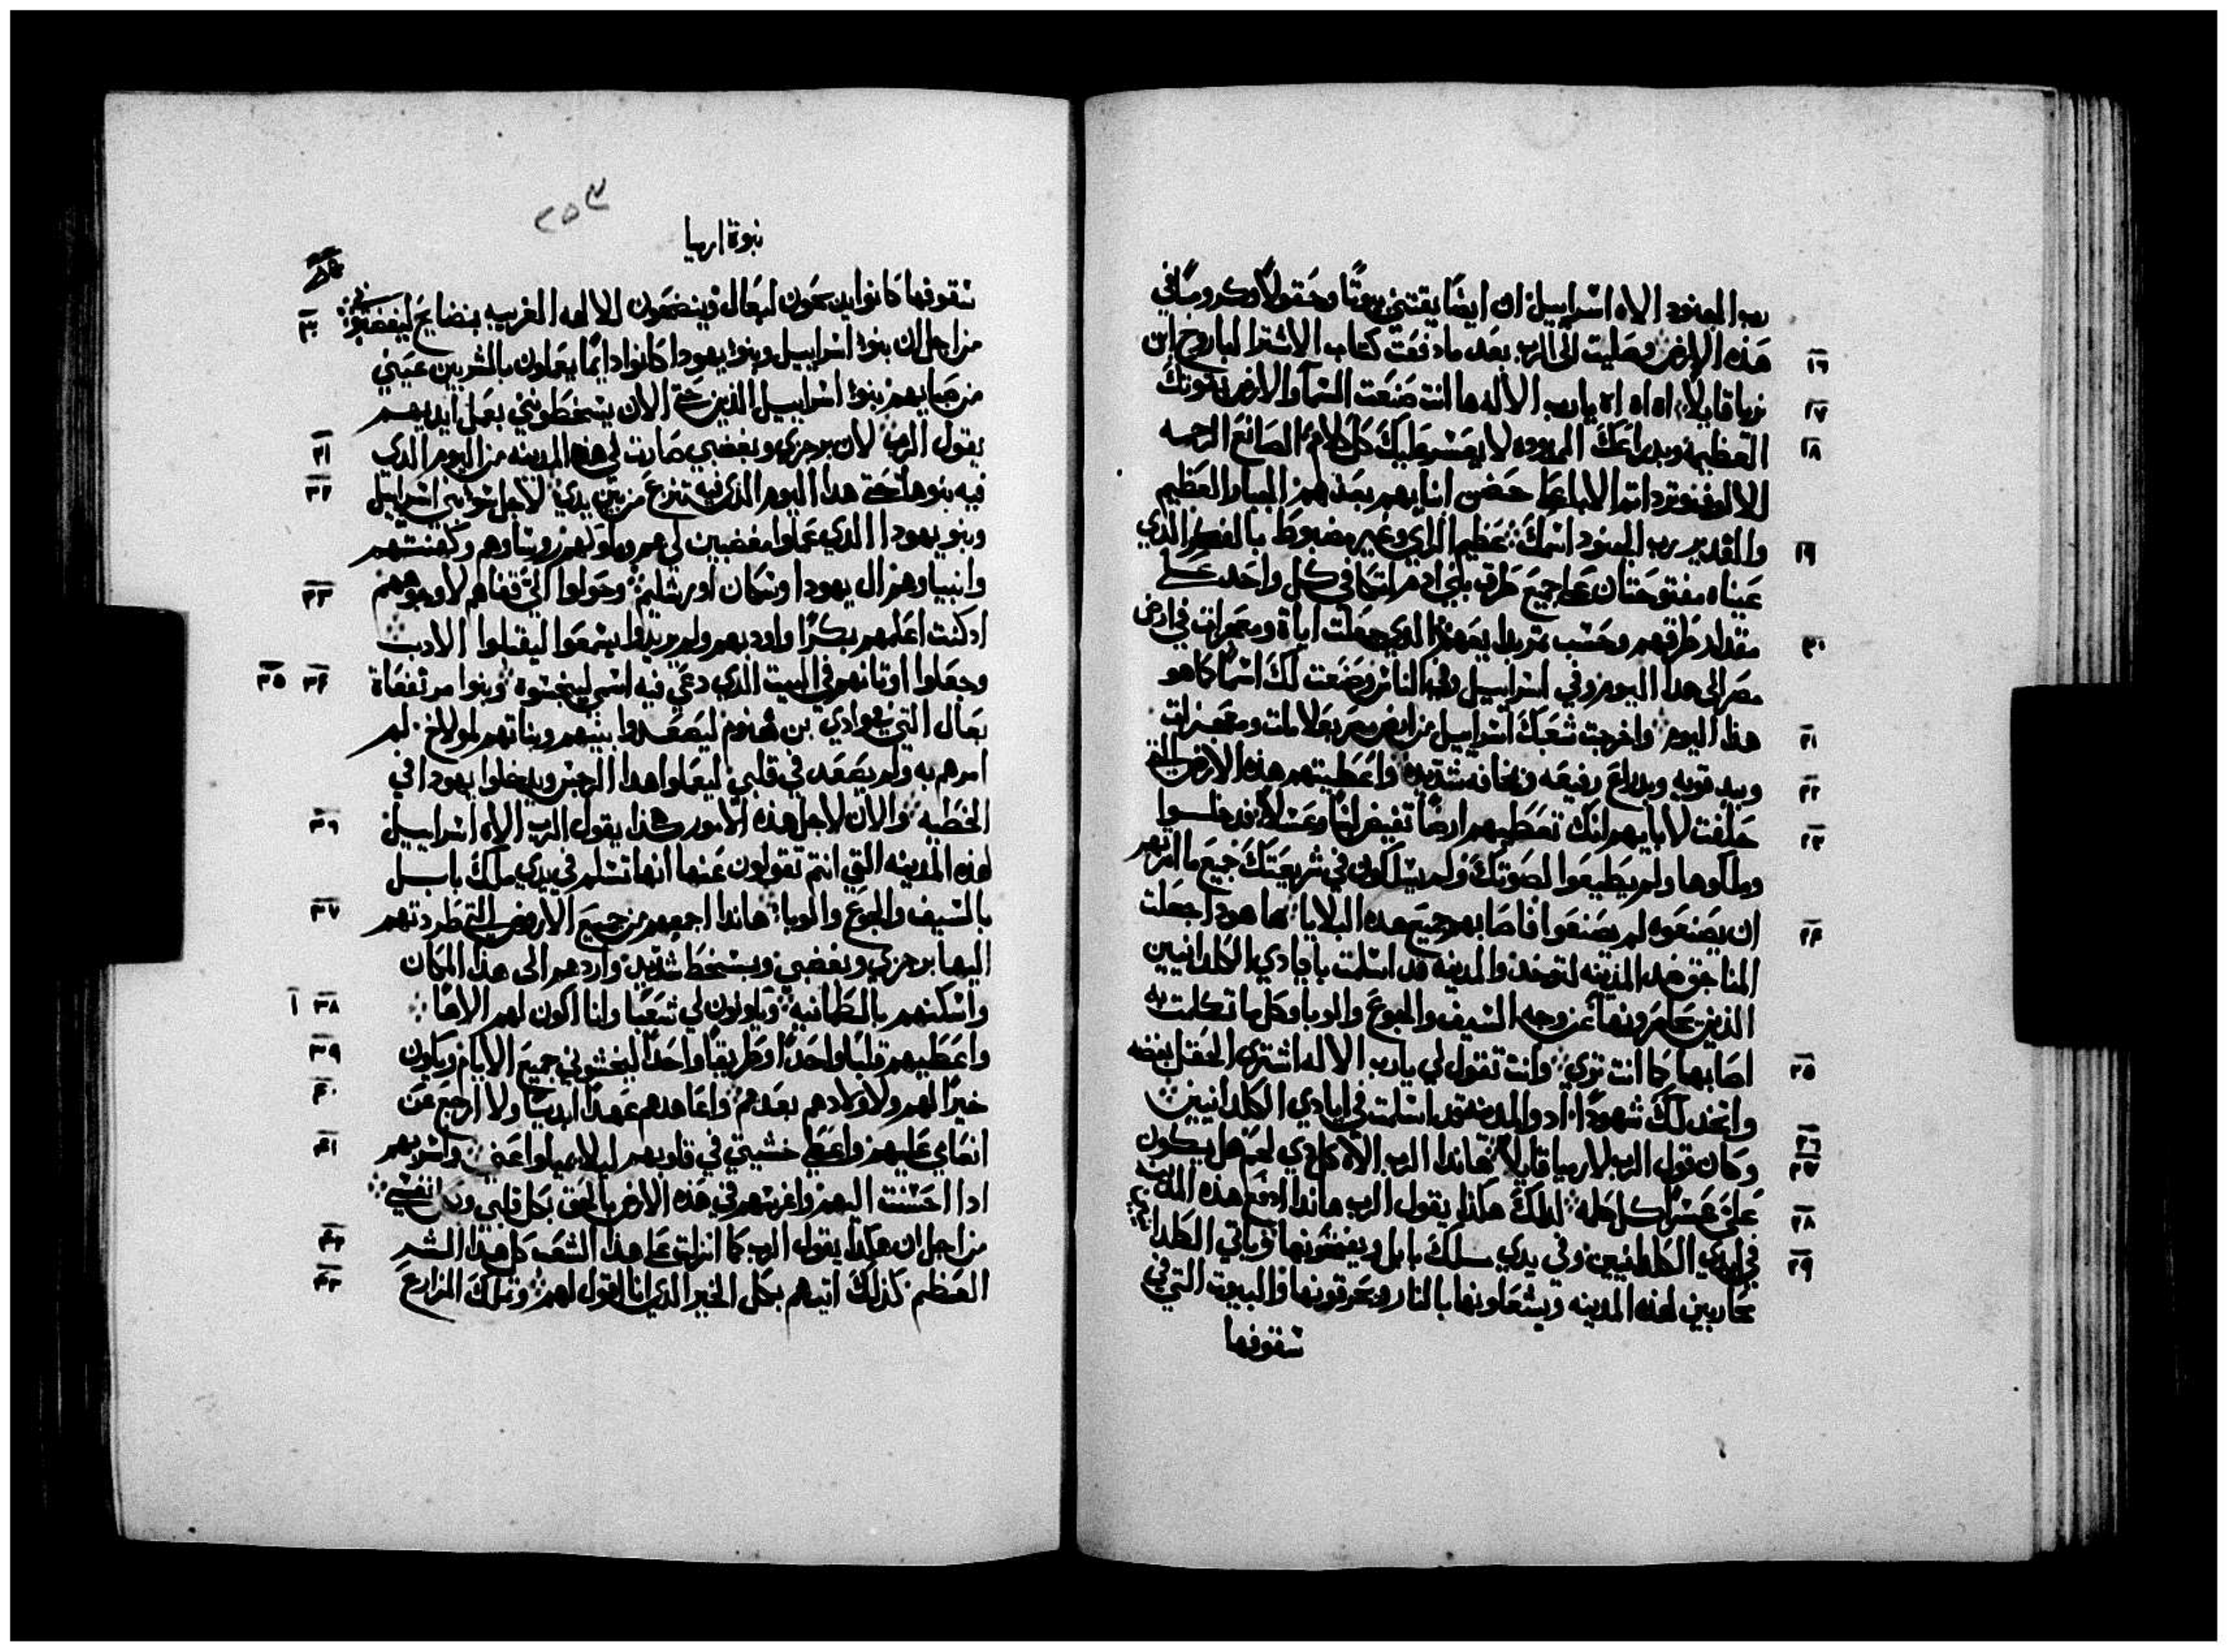 رب الجنود الاه اسراييل ان ايضا يقتني بيوتًا وحقولاً وكرومًا في
١٦ هذه الارض وصليت الى الرب بعد ما دفعت كتاب الاشترا لباروخ ابن
١٧ نريا قايلاً اه اه اه يارب الاله ها انت صنعت السما والارض بقوتك
١٨ العظيمة وبدراعك الممدوده لا يعسر عليك كل كلام الصانع الرحمه
للالوف وترد اتم الابا على حضن ابنايهم بعدهم الجبار العظيم
١٩ والقدير رب الجنود اسمك عظيم الراي وغير مضبوط بالفكر الذي
عيناه مفتوحتان على جميع طرق بني ادم لتكافي كل واحد على
٢٠ مقدار طرقهم وحسب تمرة الذي جعلت اياة ومعجزات في ارض
مصر الى هدا اليوم وفي اسراييل وفي الناس وصنعت لك اسمًا كما هو
٢١ هذا اليوم واخرجت شعبك اسراييل من ارض مصر بعلامات ومعجزات
٢٢ وبيد قويه وبدراع رفيعه وبمخافه شديده واعطيتهم هذه الارض التي
٢٣ حلفت لابايهم انك تعطيهم ارضًا تفيض لبنًا وعسلاً فدخلوا
وملكوها ولم يطيعوا لصوتك ولم يسلكون في شريعتك جميع ما امرتهم
٢٤ ان يصنعوه لم يصنعوا فاصابهم جميع هذه البلايا ها هودا جعلت
المناجق ضد المدينه لتوخد والمدينه قد اسلمت بايادي الكلدانيين
الذين يحاربونها من وجه السيف والجوع والوبا وكل ما تكلمت به
٢٥ اصابها كما انت تري وانت تقول لي يارب الاله اشتري الحقل بفضه
واتخد لك شهودًا اد والمدينه قد اسلمت في ايادي الكلدانيين
٢٦ ٢٧ وكان قول الرب لارميا قايلاً هاندا الرب الاه كل دي لحم هل يكون
٢٨ على عسرًا كل كلمه لدلك هكذا يقول الرب هاندا ادفع هذه المدينه
٢٩ في ايدي الكلدانيين وفي يدي ملك بابل ويفتحونها وياتي الكلدانيين
محاربين لهذه المدينه ويشعلونها بالنار ويحرقونها والبيوت التي في
سقوفها
٢٥٣
نبوة ارميا
سقوفها كانوا يبخرون لبعال وينضحون للالهه الغريبه بنضايح ليغضبوني
٣٠ من اجل ان بنوا اسراييل وبنوا يهودا كانوا دايمًا يعملون بالشر بين عيني
من صبايهم بنوا اسراييل الذين حتى الان يسخطونني بعمل ايديهم
٣١ يقول الرب لان برجزي وبغضبي صارت لي هذه المدينه من اليوم الدي
٣٢ فيه بنوها حتى هدا اليوم الذي فيه تنزع من بين يدي لاجل شر بني اسراييل
وبنو يهودا الدي عملوا مغضبين لي هم وملوكهم وروساوهم وكهنتهم
٣٣ وانبياوهم ال يهودا وسكان اورشليم وحولوا الي قفاهم لا وجوههم
اد كنت اعلمهم بكرًا واودبهم ولم يريدوا يسمعوا ليقبلوا الادب
٣٤ ٣٥ وجعلوا اوتانهم في البيت الذي دعي فيه اسمي لينجسوه وبنوا مرتفعاة
بعال التي في وادي بن هنوم ليصعدوا بنيهم وبناتهم لمولاخ لم
امرهم به ولم يصعد في قلبي ليعملوا هدا الرجس ويدخلوا يهودا في
٣٦ الخطيه والان لاجل هذه الامور هكذا يقول الرب الاه اسراييل
لهذه المدينه التي انتم تقولون عنها انها تسلم في يدي ملك بابل
٣٧ بالسيف والجوع والوبا هاندا اجمعهم من جميع الارض التي طردتهم
اليها برجزي وبغضبي وبسخط شديد واردهم الى هذا المكان
٣٨ واسكنهم بالطمانيه ويكونون لي شعبًا وانا اكون لهم الاهًا
٣٩ واعطيهم قلبًا واحدًا وطريقًا واحدًا ليخشوني جميع الايام ويكون
٤٠ خيرًا لهم ولاولادهم بعدهم واعاهدهم عهدًا ابديًا ولا ارجع عن
٤١ انعامي عليهم واعطي خشيتي في قلوبهم ليلا يميلوا عني واسر بهم
ادا احسنت اليهم واغرسهم في هذه الارض بالحق بكل قلبي وبكل نفسي
٤٢ من اجل ان هكدا يقول الرب كما انزلت على هذا الشعب كل هذا الشر
٤٣ العظيم كذلك اتيهم بكل الخير الذي انا اقول لهم وتملك المزارع